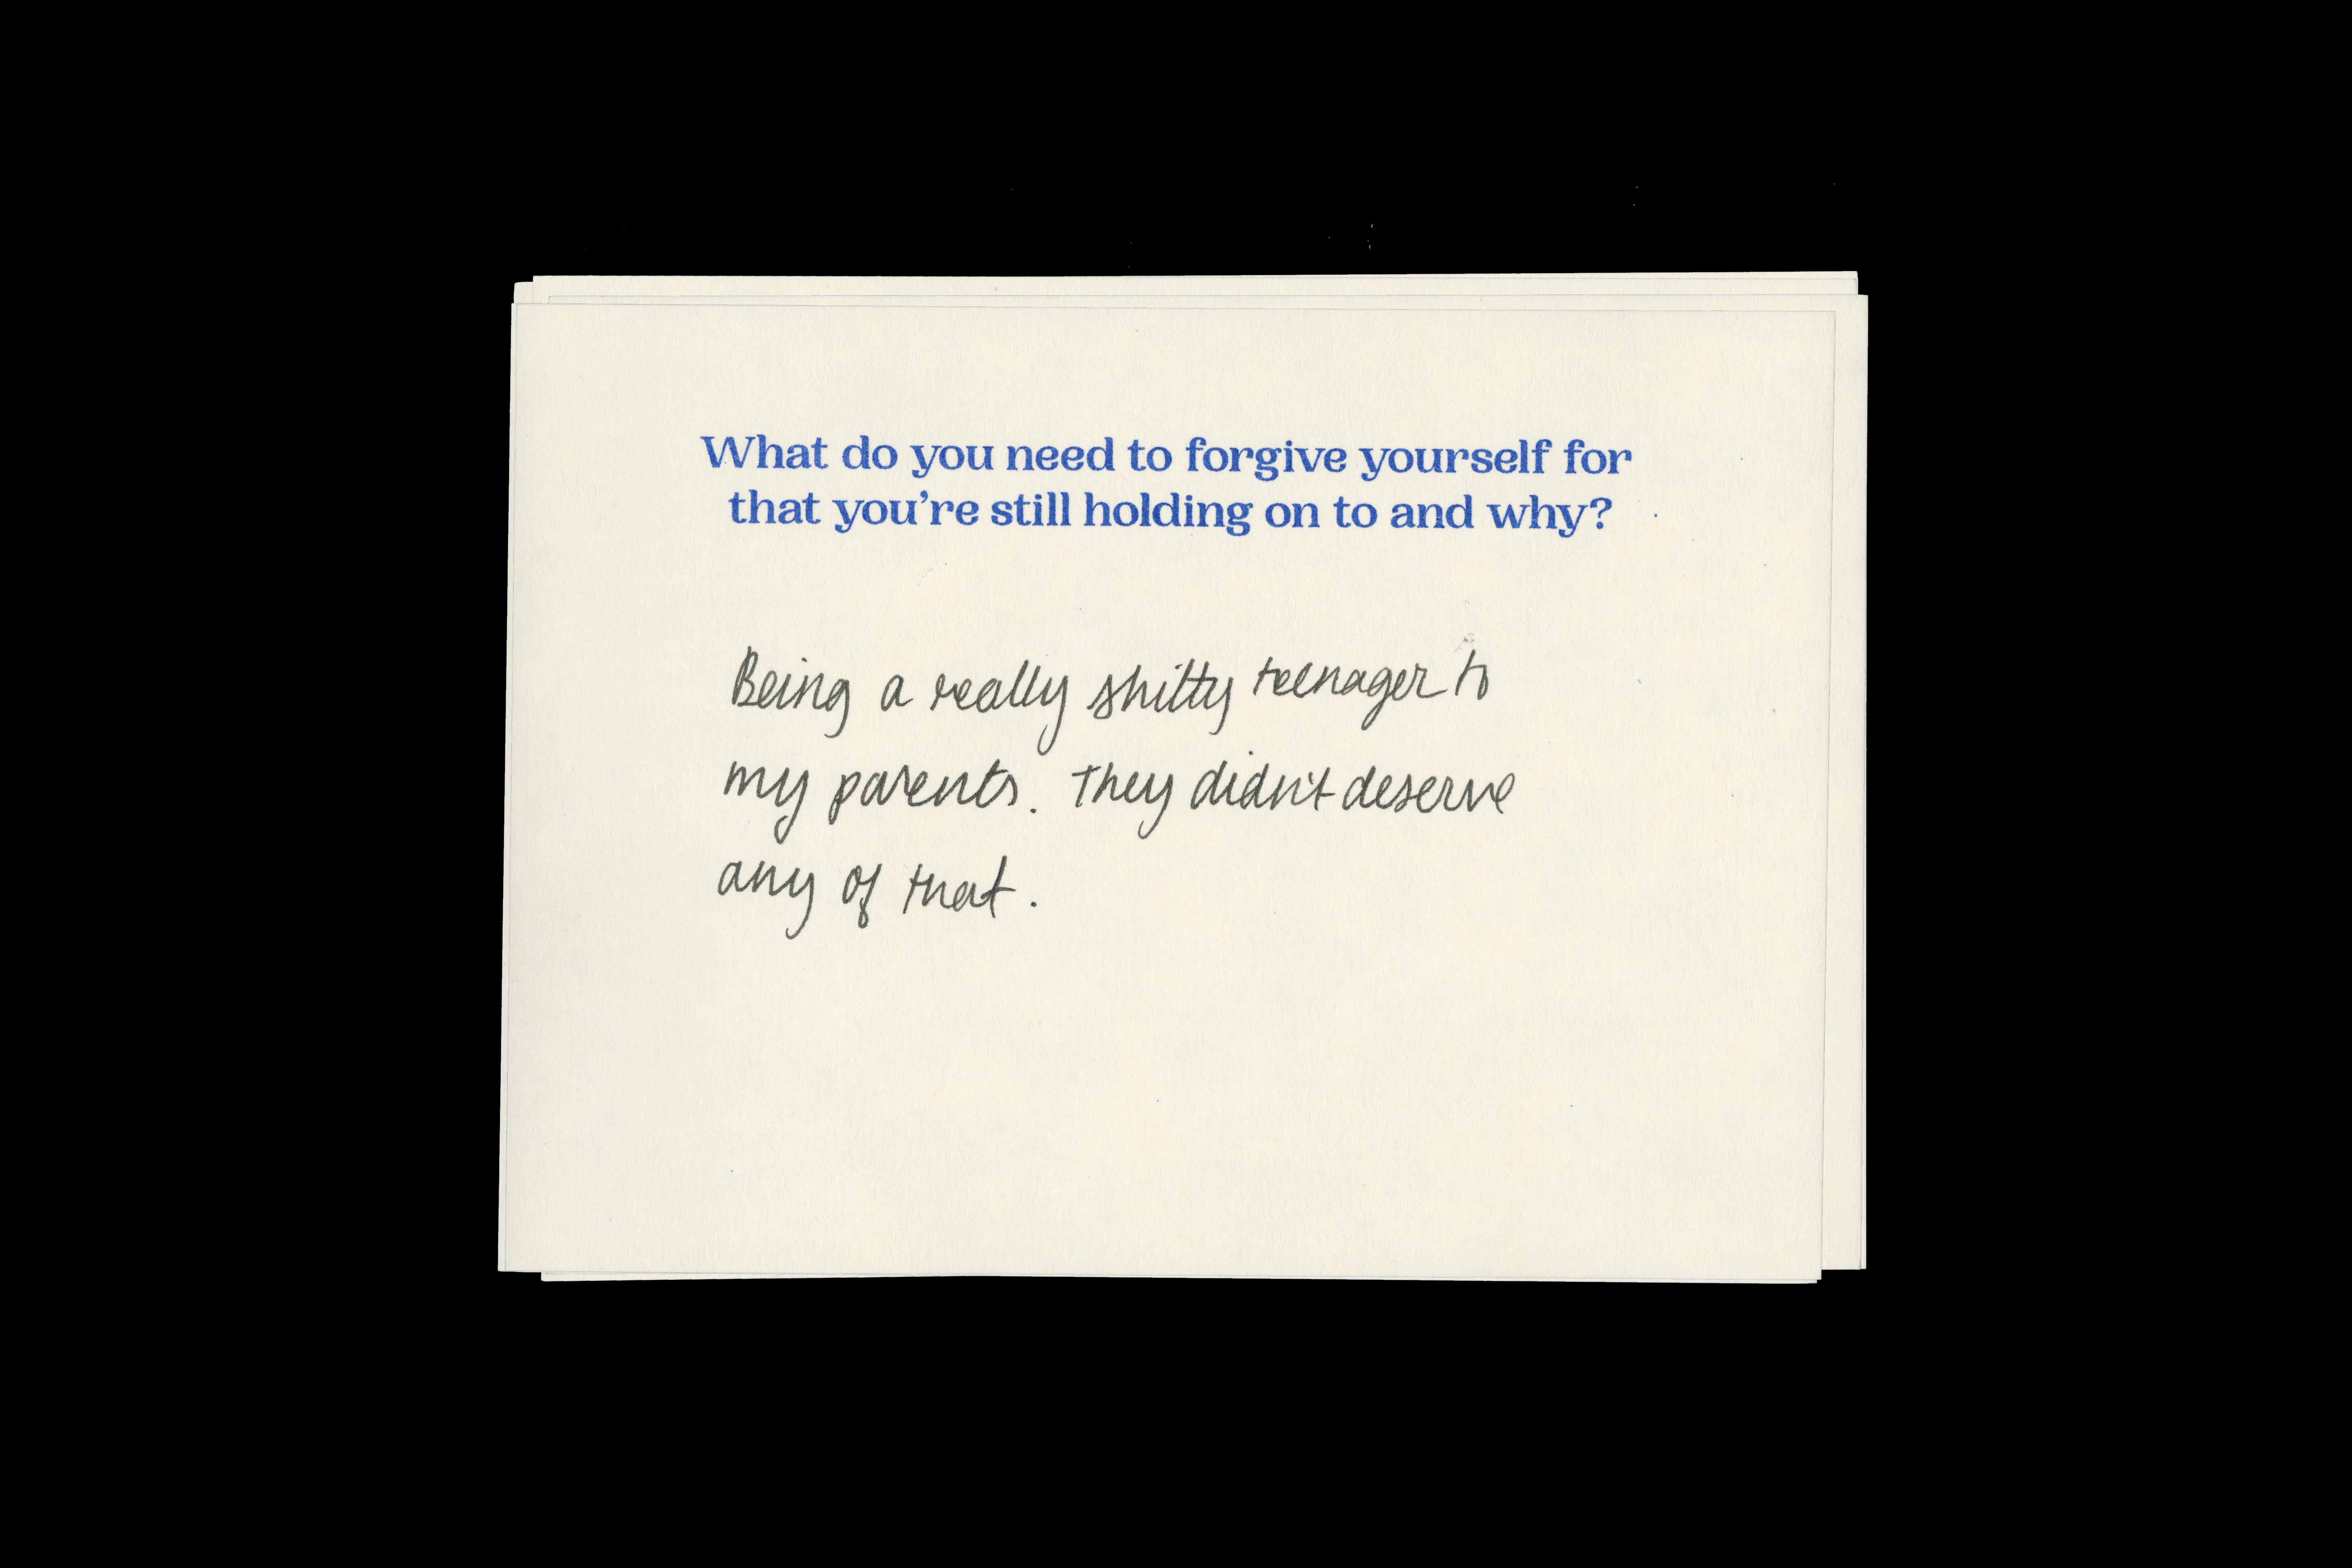 What do you need to forgive yourself for
that you're still holding on to and why?
Being a really shitty teenager to
my parents. They didn't deserve
any of that.